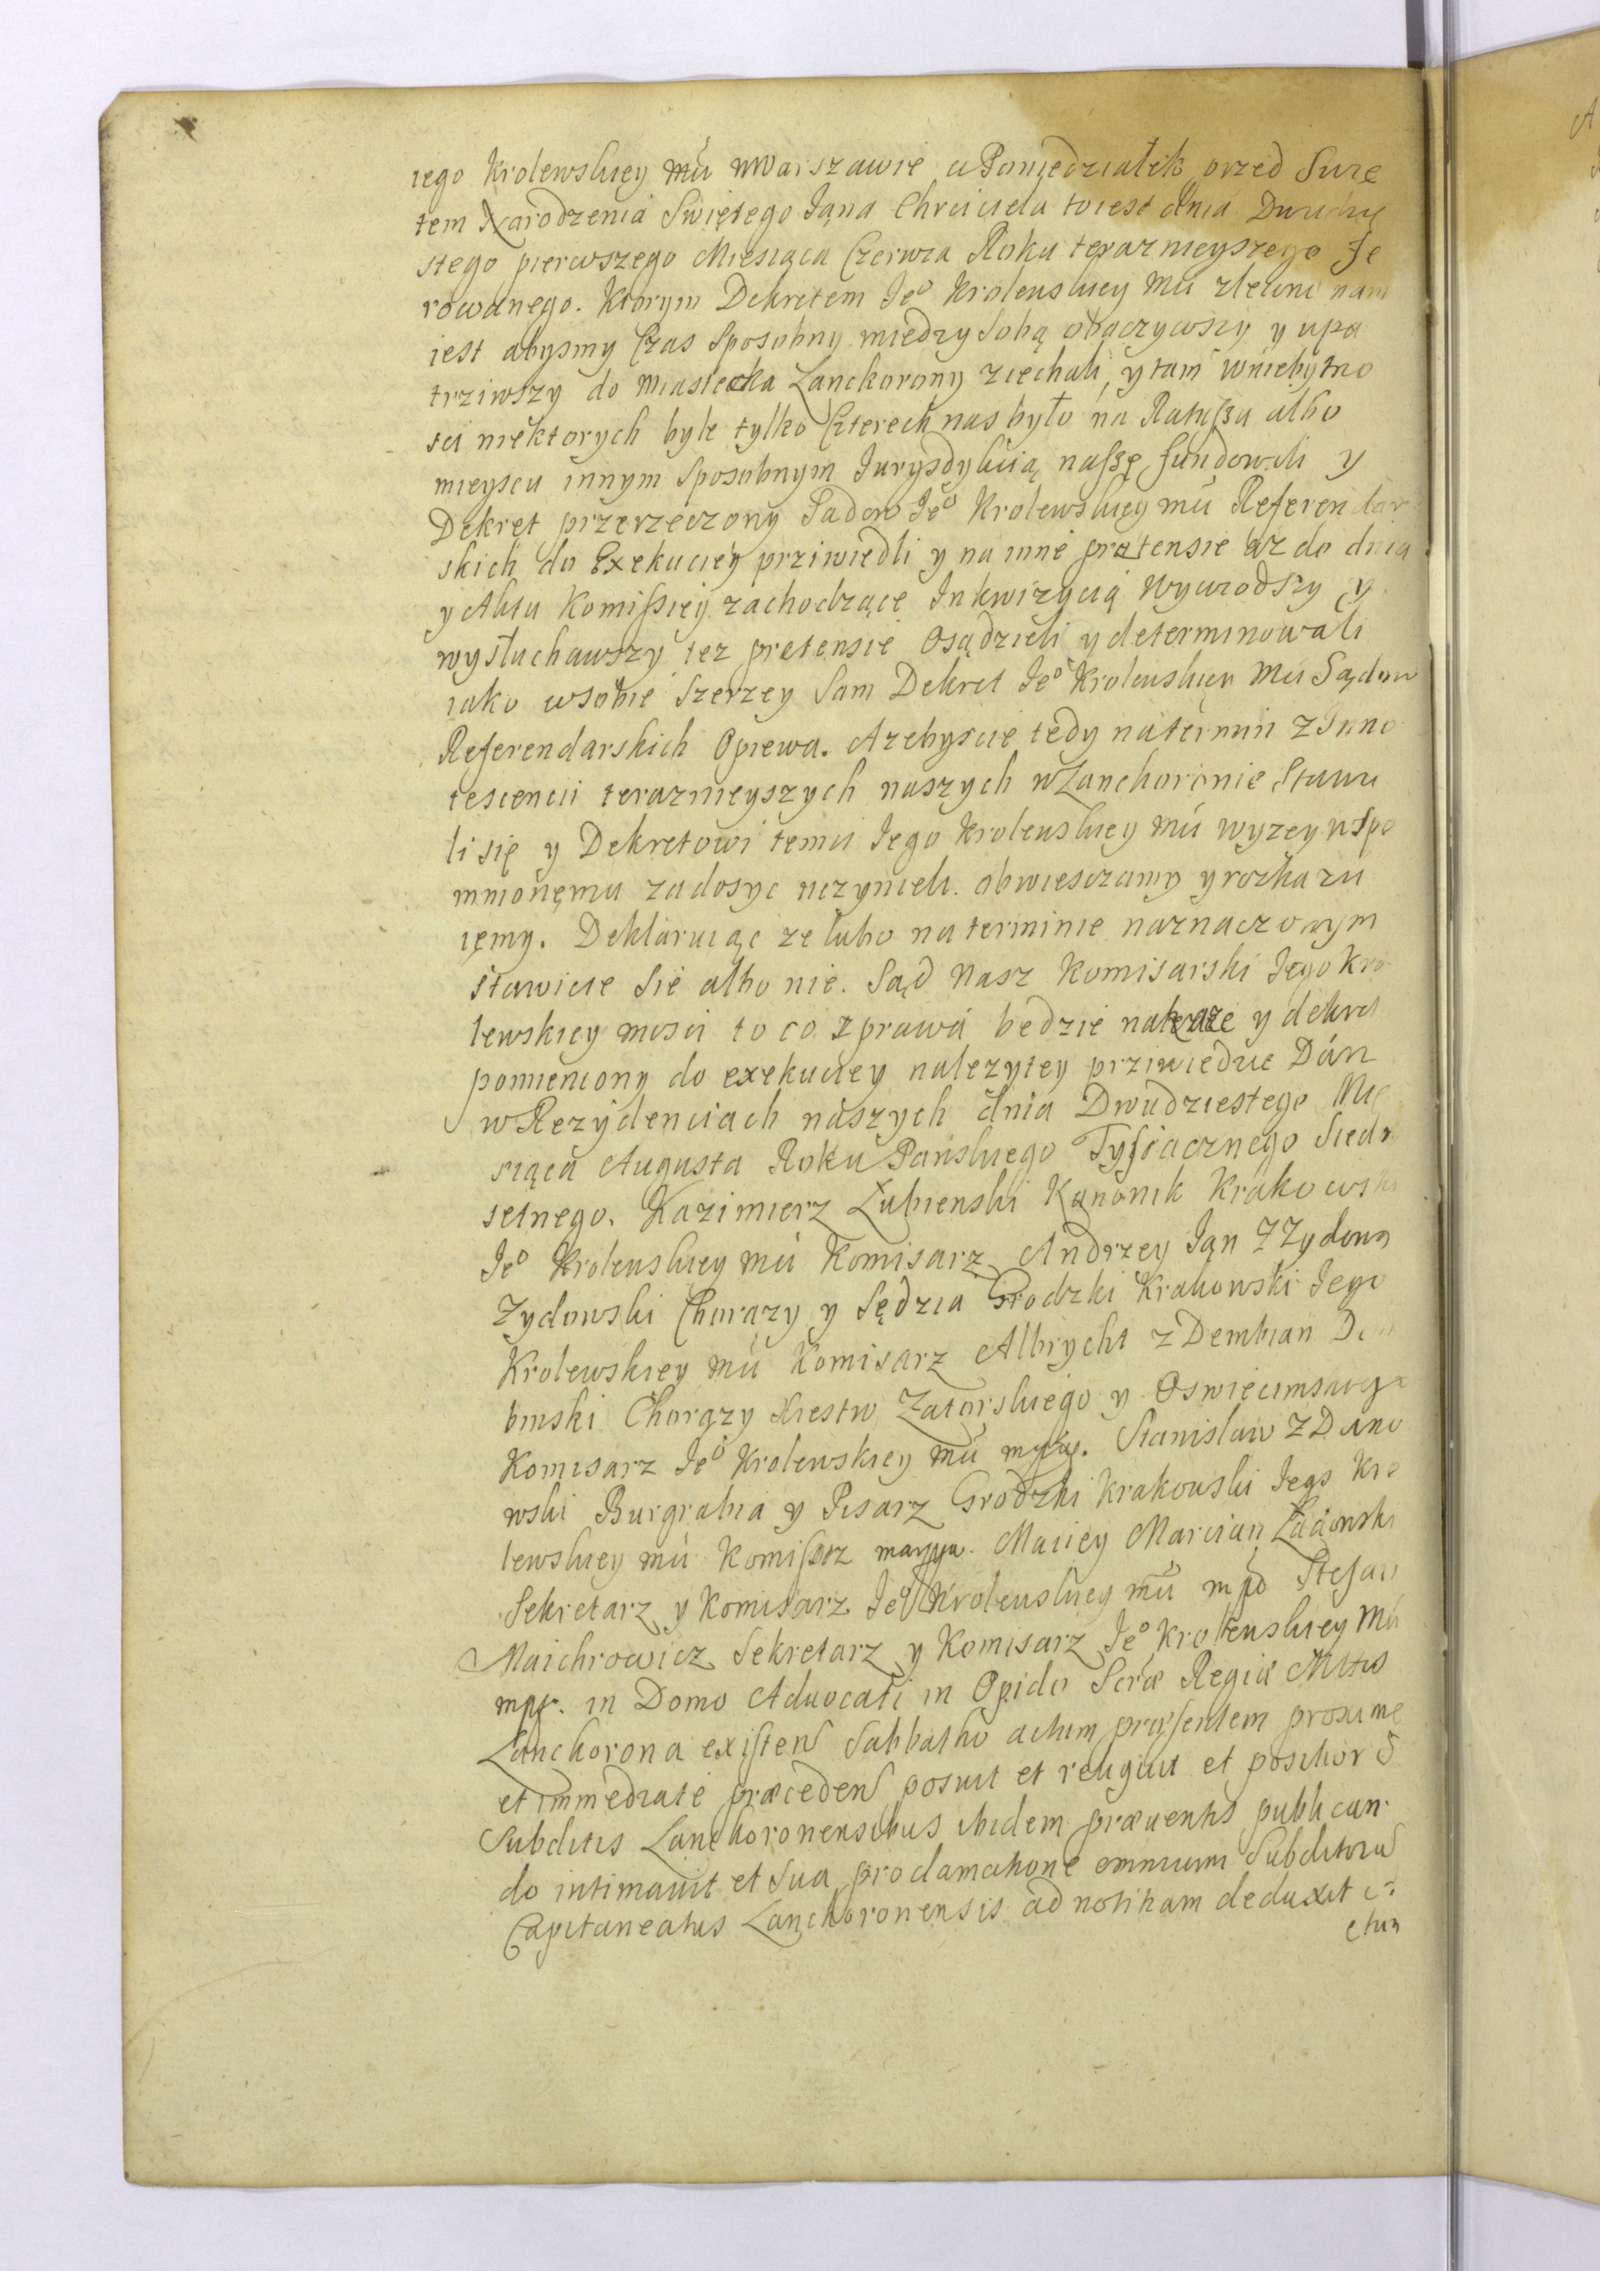 iego Krolewskiey mci w Warszawie w Poniedziałek przed Swię
tem Narodzenia Swiętego Jąna Chrciciela toiest dnia Dwudzie
stego pierwszego Miesiąca Czerwca Roku terazniejszego Fe
rowanego. Ktorym Dekretem Jeº Krolewskiey Mci zlecono nam
iest abysmy Czas Sposobny miedzy Sobą obaczywszy y upa
trziwszy do miasteczka Lanckorony ziechali, y tam w niebytno
sci niektorych byle tylko Czterech nas było na Ratuszu albo
mieyscu innym Sposobnym Jurysdykcią naszę fundowali y
Dekret przerzeczony Sadow Jeº Krolewskiey mci Referendar
skich do Exekuciey prziwiedli y na inne pretensie az do dnia
y Aktu Komissiey zachodzące Inkwizycią wywodszy y
wysłuchawszy tez pretensie osądzieli y determinowali
iako wsobie Szerzey Sam Dekret Jeº Krolewskiey Mci Sądow
Referendarskich Opiewa. Azebyscie tedy na termin z Inno
tescencii terazmieyszych naszych w Lanckoronie Stawi
li się y Dekretowi temu Jego Krolewskiey mci wyzey wspo
mnionęmu zadosyc uczynieli. obwiesczamy y rozkazu
ięmy. Deklaruiąc ze lubo na terminie naznaczonym
stawicie Sie albo nie. Sąd Nasz Komisarski Jego Kro
lewskiey mosci to co z prawa bedzie nakaze y dekret
pomieniony do exekuciey nalezytey prziwiedzie Dan
w Rezydenciach naszych dnia Dwudziestego Mie
siąca Augusta Roku Pańskiego Tysiacznego Siedm
setnego. Kazimierz Łubienski Kanonik Krakowski
Jeº Krolewskiey mci Komisarz Andrzey Jąn z Zydowa
Zydowski Chorązy y Sędzia Grodzki Krakowski Jego
Krolewskiey mci Komisarz Albrycht z Dembian Dem
binski Chorązy Xiestw Zatorskiego y Oswiecimskiego
Komisarz Jeº Krolewskiey mci mpp. Stanisław Z Dano
wski Burgrabia y Pisarz Grodzki Krakowski Jego Kro
lewskiey mci Komissarz Maciey Marcian
Sekretarz y Komisarz Jeº Krolewskiey mci mpp Stefan
Maichrowicz Sekretarz y Komisarz Jeº Krolewskiey Mci
mpp. in Domo Aduocati in Opido Scræ Regiæ Mttis
Lanckorona existen Sabbatho actum præsentem proxime
et immediate præceden posuit et reliquit et positior
Subditis Lanckoronensibus ibidem præuentis publican
do intimauit et sua proclamatione omnium Subditoru
Capitaneatus Lanckoronensis ad notitiam deduxit
ctum